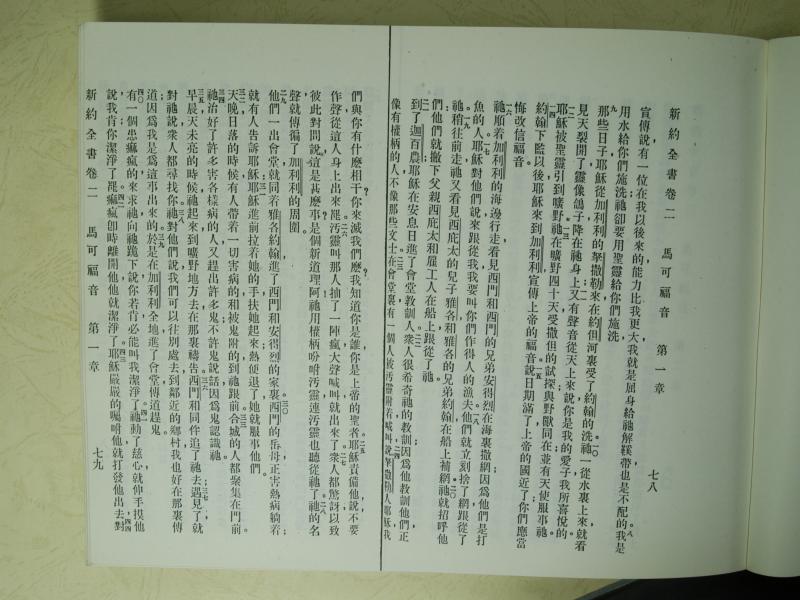 新約全書卷二 馬可福音 第一章 七八
宣傳說有一位在我以後來的能力比我更大我就是屈身給祂解鞋帶也是不配的我是八
用水給你們施洗祂卻要用聖靈給你們施洗
九那些日子耶穌從加利利的拏撒勒來在約但河裏受了約翰的洗祂一從水裏上來就看一〇
見天裂開了聖靈像鴿子降在祂身上又有聲音從天上來說你是我的愛子我所喜悅的一一
一二耶穌被聖靈引到曠野祂在曠野四十天受撒但的試探與野獸同在並有天使服事祂一三
一四約翰下監以後耶穌來到加利利宣傳上帝的福音說日期滿了上帝的國近了你們應當一五
悔改信福音
一六祂順着加利利的海邊行走看見西門和西門的兄弟安得烈在海裏撒網因爲他們是打
魚的人耶穌對他們說來跟從我我要叫你們作得人的漁夫他們就立刻捨了網跟從了一七一八
祂稍往前走祂又看見西庇太的兒子雅各和雅各的兄弟約翰在船上補網祂就招呼他一九二〇
們他們就撇下父親西庇太和雇工人在船上跟從了祂
二一到了迦百農耶穌在安息日進了會堂教訓人衆人很希奇祂的教訓因爲他教訓他們正二二
像有權柄的人不像那些文士在會堂裏有一個人被汚靈附着喊叫說拏撒勒人耶穌我二三二四
們與你有什麼相干你來滅我們麼我知道你是誰你是上帝的聖者耶穌責備他說不要二五
作聲從這人身上出來罷汚靈叫那人抽了一陣瘋大聲喊叫就出來了衆人都驚訝以致二六二七
彼此對問說這是甚麼事是個新道理阿祂用權柄吩咐汚靈連汚靈也聽從祂了祂的名二八
聲就傳徧了加利利的周圍
二九他們一出會堂就同着雅各約翰進了西門和安得烈的家裏西門的岳母正害熱病躺着三〇
就有人告訴耶穌耶穌進前拉着她的手扶她起來熱便退了她就服事他們三一
三二天晚日落的時候有人帶着一切害病的和被鬼附的到祂跟前合城的人都聚集在門前三三
三四祂治好了許多害各樣病的人又趕出許多鬼不許鬼說話因爲鬼認識祂
三五早晨天未亮的時候祂起來到曠野地方去在那裏禱告西門和同伴追了祂去遇見了就三六三七
對祂說衆人都尋找你祂對他們說我們可以往別處去到鄰近的鄉村我也好在那裏傳三八
道因爲我是爲這事出來的於是在加利利全地進了會堂傳道趕鬼三九
四〇有一個患癩瘋的來求祂向祂跪下說你若肯必能叫我潔淨了祂動了慈心就伸手摸他四一
說我肯你潔淨了罷癩瘋卽時離開他他就潔淨了耶穌嚴嚴的囑咐他就打發他出去對四二四三四四
新約全書卷二 馬可福音 第一章 七九